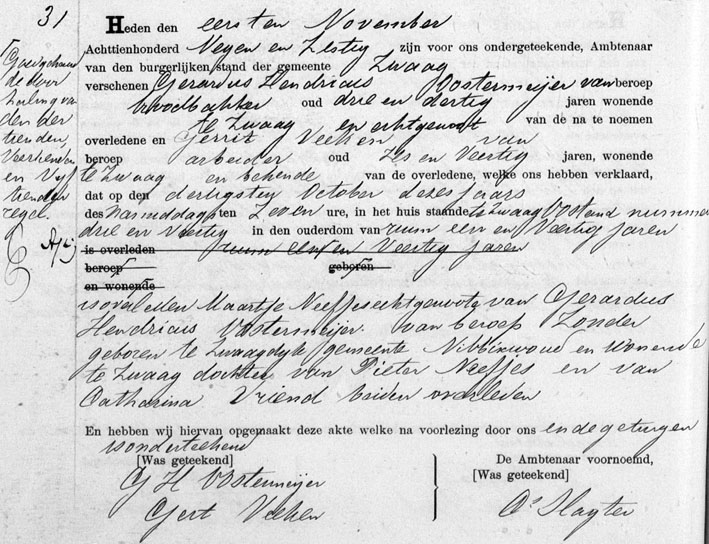 31
Heden den eersten November
Achttienhonderd Negen en Zestig zijn voor ons ondergeteekende, Ambtenaar
van den burgerlijken stand der gemeente Zwaag
verschenen Gerardus Hendricus Oostermeijer van beroep
broodbakker oud drie en dertig jaren wonende
te Zwaag en echtgenoot van de na te noemen
overledene en Gerrit Veeken van
beroep arbeider oud Zes en Veertig jaren, wonende
te Zwaag en bekende van de overledene, welke ons hebben verklaard,
dat op den dertigsten October dezes jaars
des namiddags ten Zeven ure, in het huis staande te Zwaag Oostend nummer
drie en Veertig in den ouderdom van ruim een en Veertig jaren
is overleden ruim een en Veertig jaren
beroep geboren
en wonende
is overleden Maartje Neefjes echtgenote van Gerardus
Hendricus Oostermeijer van beroep Zonder
geboren te Zwaagdyk gemeente Nibbixwoud en Wonende
te Zwaag dochter van Pieter Neefjes en van
Catharina Vriend beiden overleden
En hebben wij hiervan opgemaakt deze akte welke na voorlezing door ons en de getuigen
is onderteekend
[Was geteekend]
G H Oostermeijer
Gert Veeken
De Ambtenaar voornoemd,
[Was geteekend]
Slagter
de door
haling va
den der
tienden,
Veertienden
en Vyf
tienden
regel.